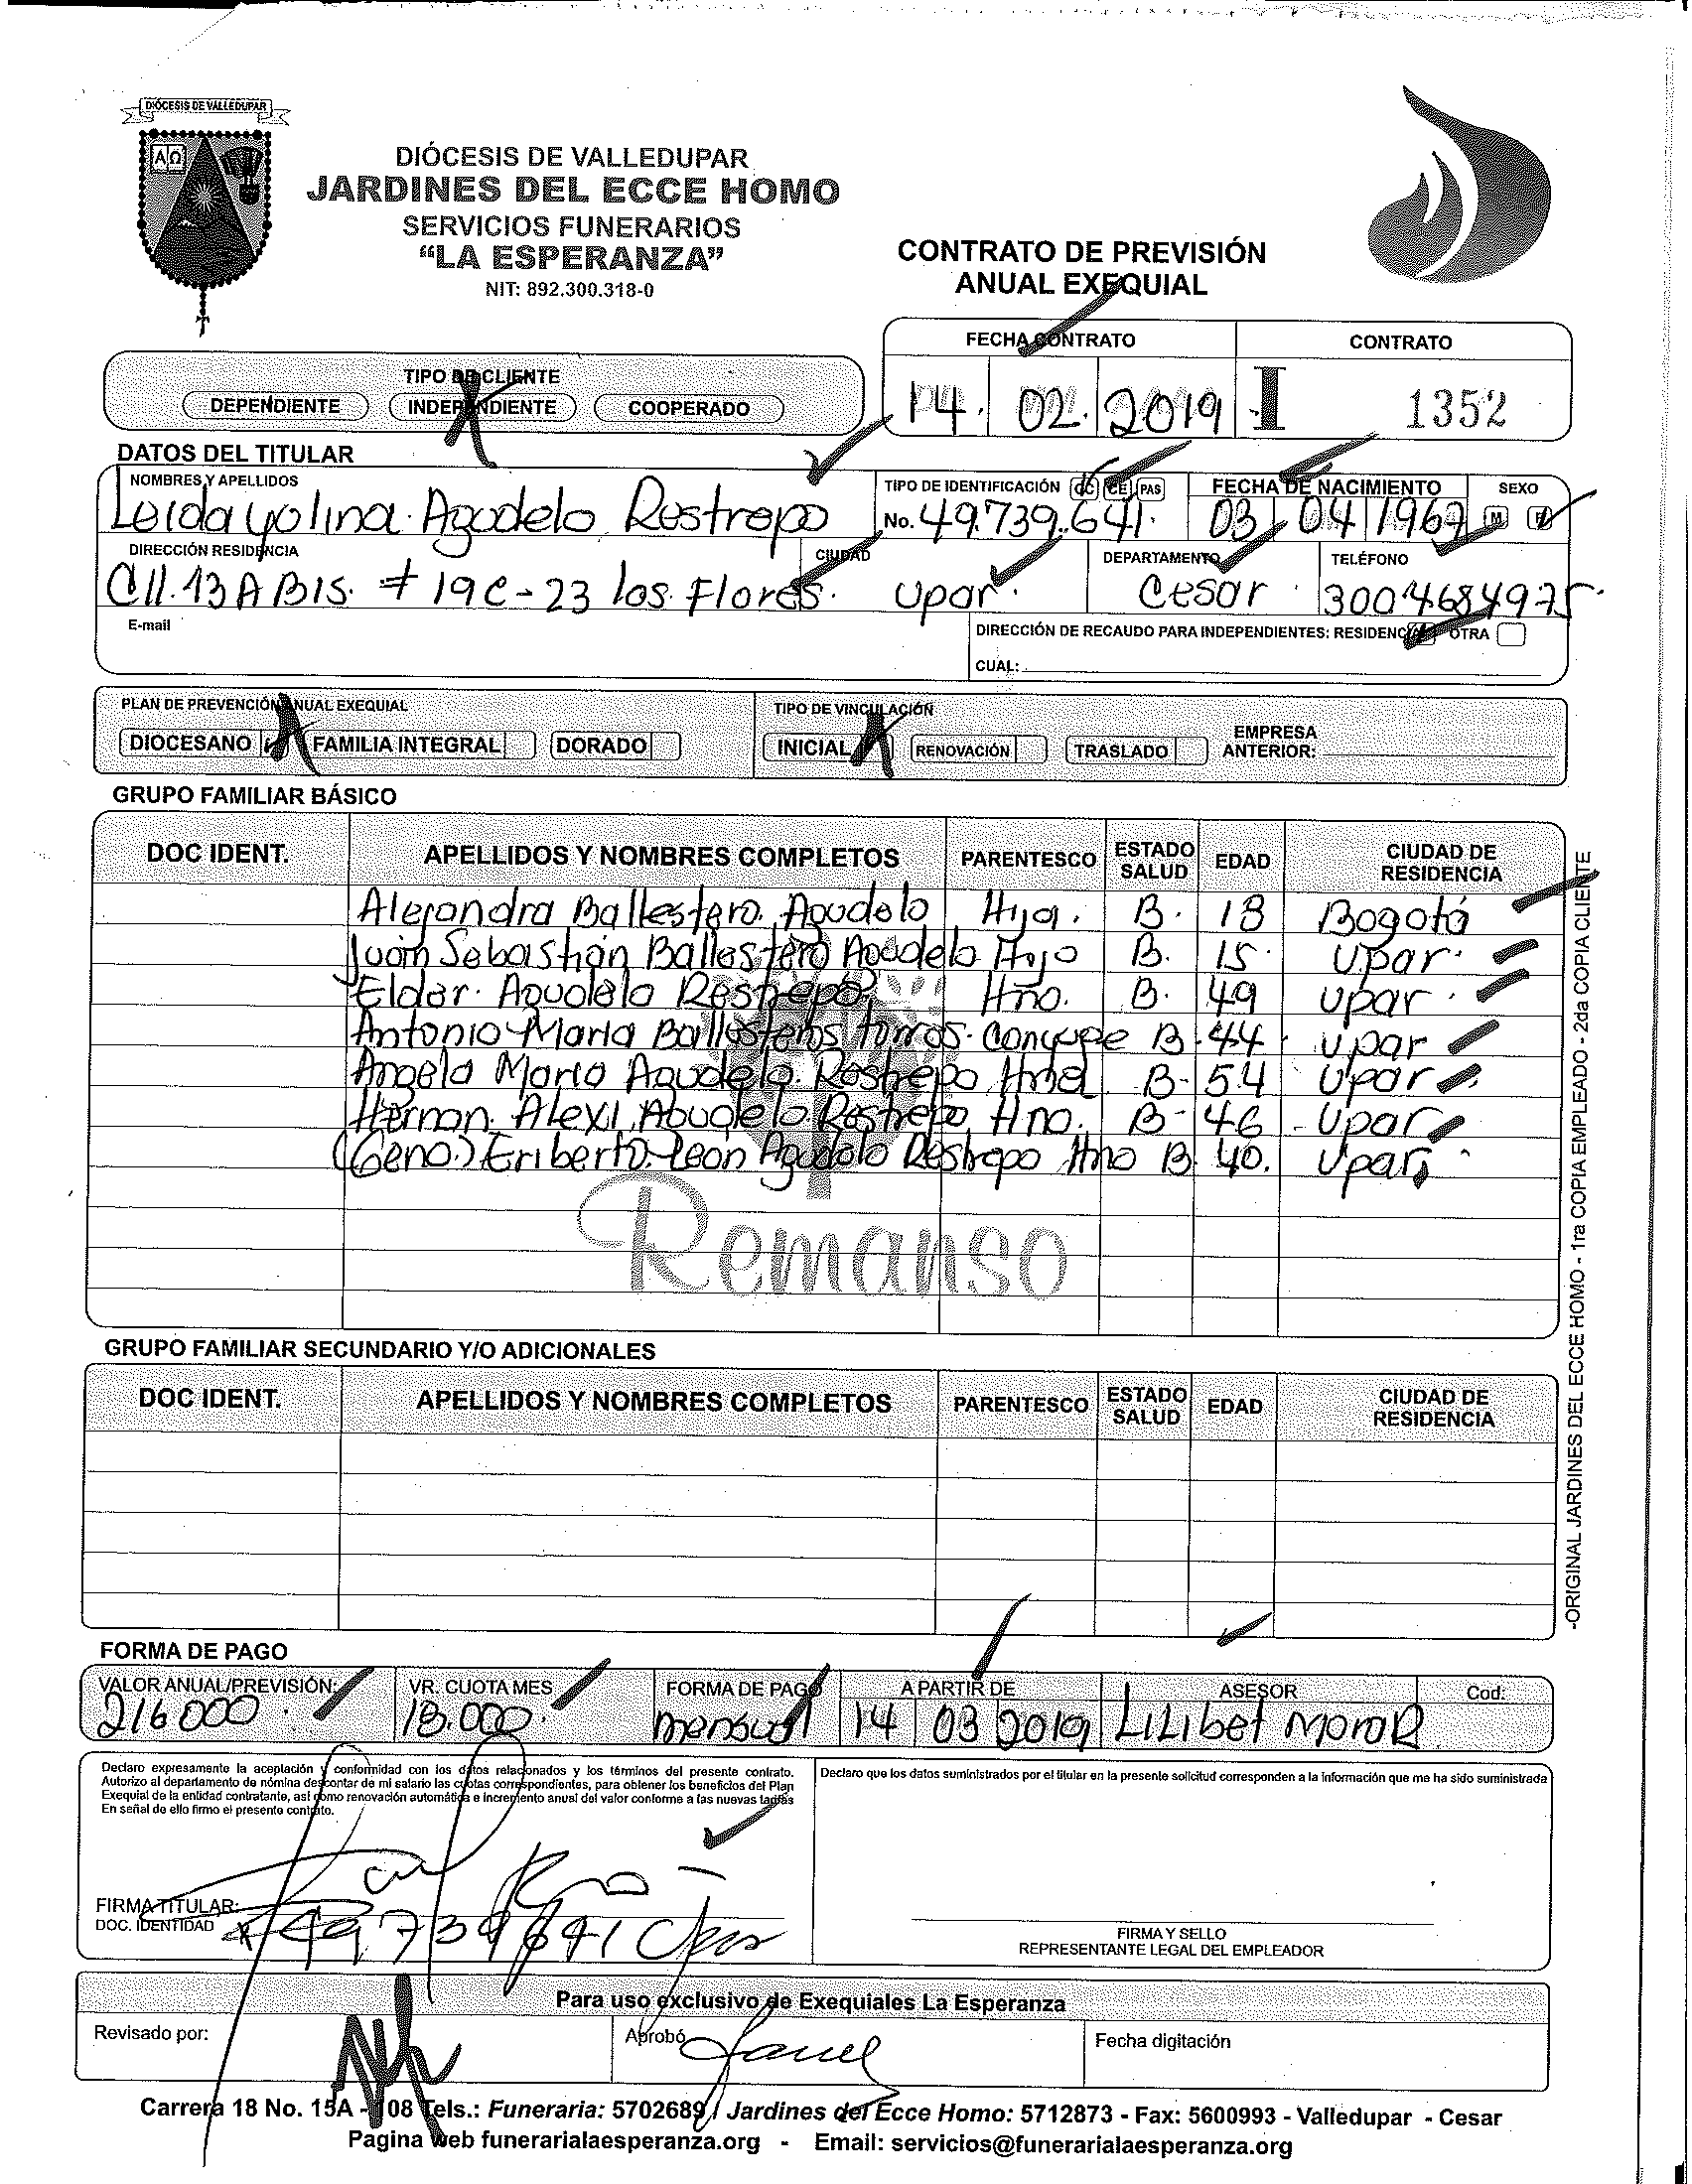 DIÓCESIS DE VALLEDUPAR
ΑΩ
DIÓCESIS DE VALLEDUPAR
JARDINES DEL ECCE HOMO
SERVICIOS FUNERARIOS
“LA ESPERANZA”
NIT: 892.300.318-0
CONTRATO DE PREVISIÓN
ANUAL EXEQUIAL
FECHA CONTRATO CONTRATO
14. 02. 2019 I 1352
TIPO DE CLIENTE
DEPENDIENTE INDEPENDIENTE COOPERADO
DATOS DEL TITULAR
NOMBRES Y APELLIDOS TIPO DE IDENTIFICACIÓN CC CE PAS FECHA DE NACIMIENTO SEXO
Leida yolina Agudelo Restrepo No. 49.739.641. 03 04 1967 M F
DIRECCIÓN RESIDENCIA CIUDAD DEPARTAMENTO TELÉFONO
Cll. 13 A BIS. # 19C-23 los Flores. Upar. Cesar. 3004684975.
E-mail DIRECCIÓN DE RECAUDO PARA INDEPENDIENTES: RESIDENCIA OTRA
CUAL:
PLAN DE PREVENCIÓN ANUAL EXEQUIAL TIPO DE VINCULACIÓN
DIOCESANO FAMILIA INTEGRAL DORADO INICIAL RENOVACIÓN TRASLADO EMPRESA ANTERIOR:
GRUPO FAMILIAR BÁSICO
DOC IDENT. APELLIDOS Y NOMBRES COMPLETOS PARENTESCO ESTADO SALUD EDAD CIUDAD DE RESIDENCIA
Alejandra Ballestero. Agudelo Hija. B. 18 Bogotá
Juan Sebastián Ballestero Agudelo Hijo B. 15. Upar.
Elder. Agudelo Restrepo Hno. B. 49 upar.
Antonio Maria Ballesteros torres. Conyuge B. 44. upar
Angela Maria Agudelo. Restrepo Hna B- 54 Upar
Hernan. Alexi Agudelo Restrepo Hno. B- 46 - Upar
(Geno.) Eriberto. Leon Agudelo Restrepo Hno B. 40. Upar.
Remanso
GRUPO FAMILIAR SECUNDARIO Y/O ADICIONALES
DOC IDENT. APELLIDOS Y NOMBRES COMPLETOS PARENTESCO ESTADO SALUD EDAD CIUDAD DE RESIDENCIA
-ORIGINAL JARDINES DEL ECCE HOMO - 1ra COPIA EMPLEADO - 2da COPIA CLIENTE
FORMA DE PAGO
VALOR ANUAL/PREVISIÓN: VR. CUOTA MES FORMA DE PAGO A PARTIR DE ASESOR Cod:
216000. 18.000. mensual 14 03 2019 Lilibet Mora R
Declaro expresamente la aceptación y conformidad con los datos relacionados y los términos del presente contrato.
Autorizo al departamento de nómina descontar de mi salario las cuotas correspondientes, para obtener los beneficios del Plan
Exequial de la entidad contratante, así como renovación automática e incremento anual del valor conforme a las nuevas tarifas
En señal de ello firmo el presente contrato.
Declaro que los datos suministrados por el titular en la presente solicitud corresponden a la información que me ha sido suministrada
FIRMA TITULAR:
DOC. IDENTIDAD 49739641
FIRMA Y SELLO
REPRESENTANTE LEGAL DEL EMPLEADOR
Para uso exclusivo de Exequiales La Esperanza
Revisado por: Aprobó Fecha digitación
Carrera 18 No. 15A - 108 Tels.: Funeraria: 5702689 / Jardines del Ecce Homo: 5712873 - Fax: 5600993 - Valledupar - Cesar
Pagina web funerarialaesperanza.org - Email: servicios@funerarialaesperanza.org